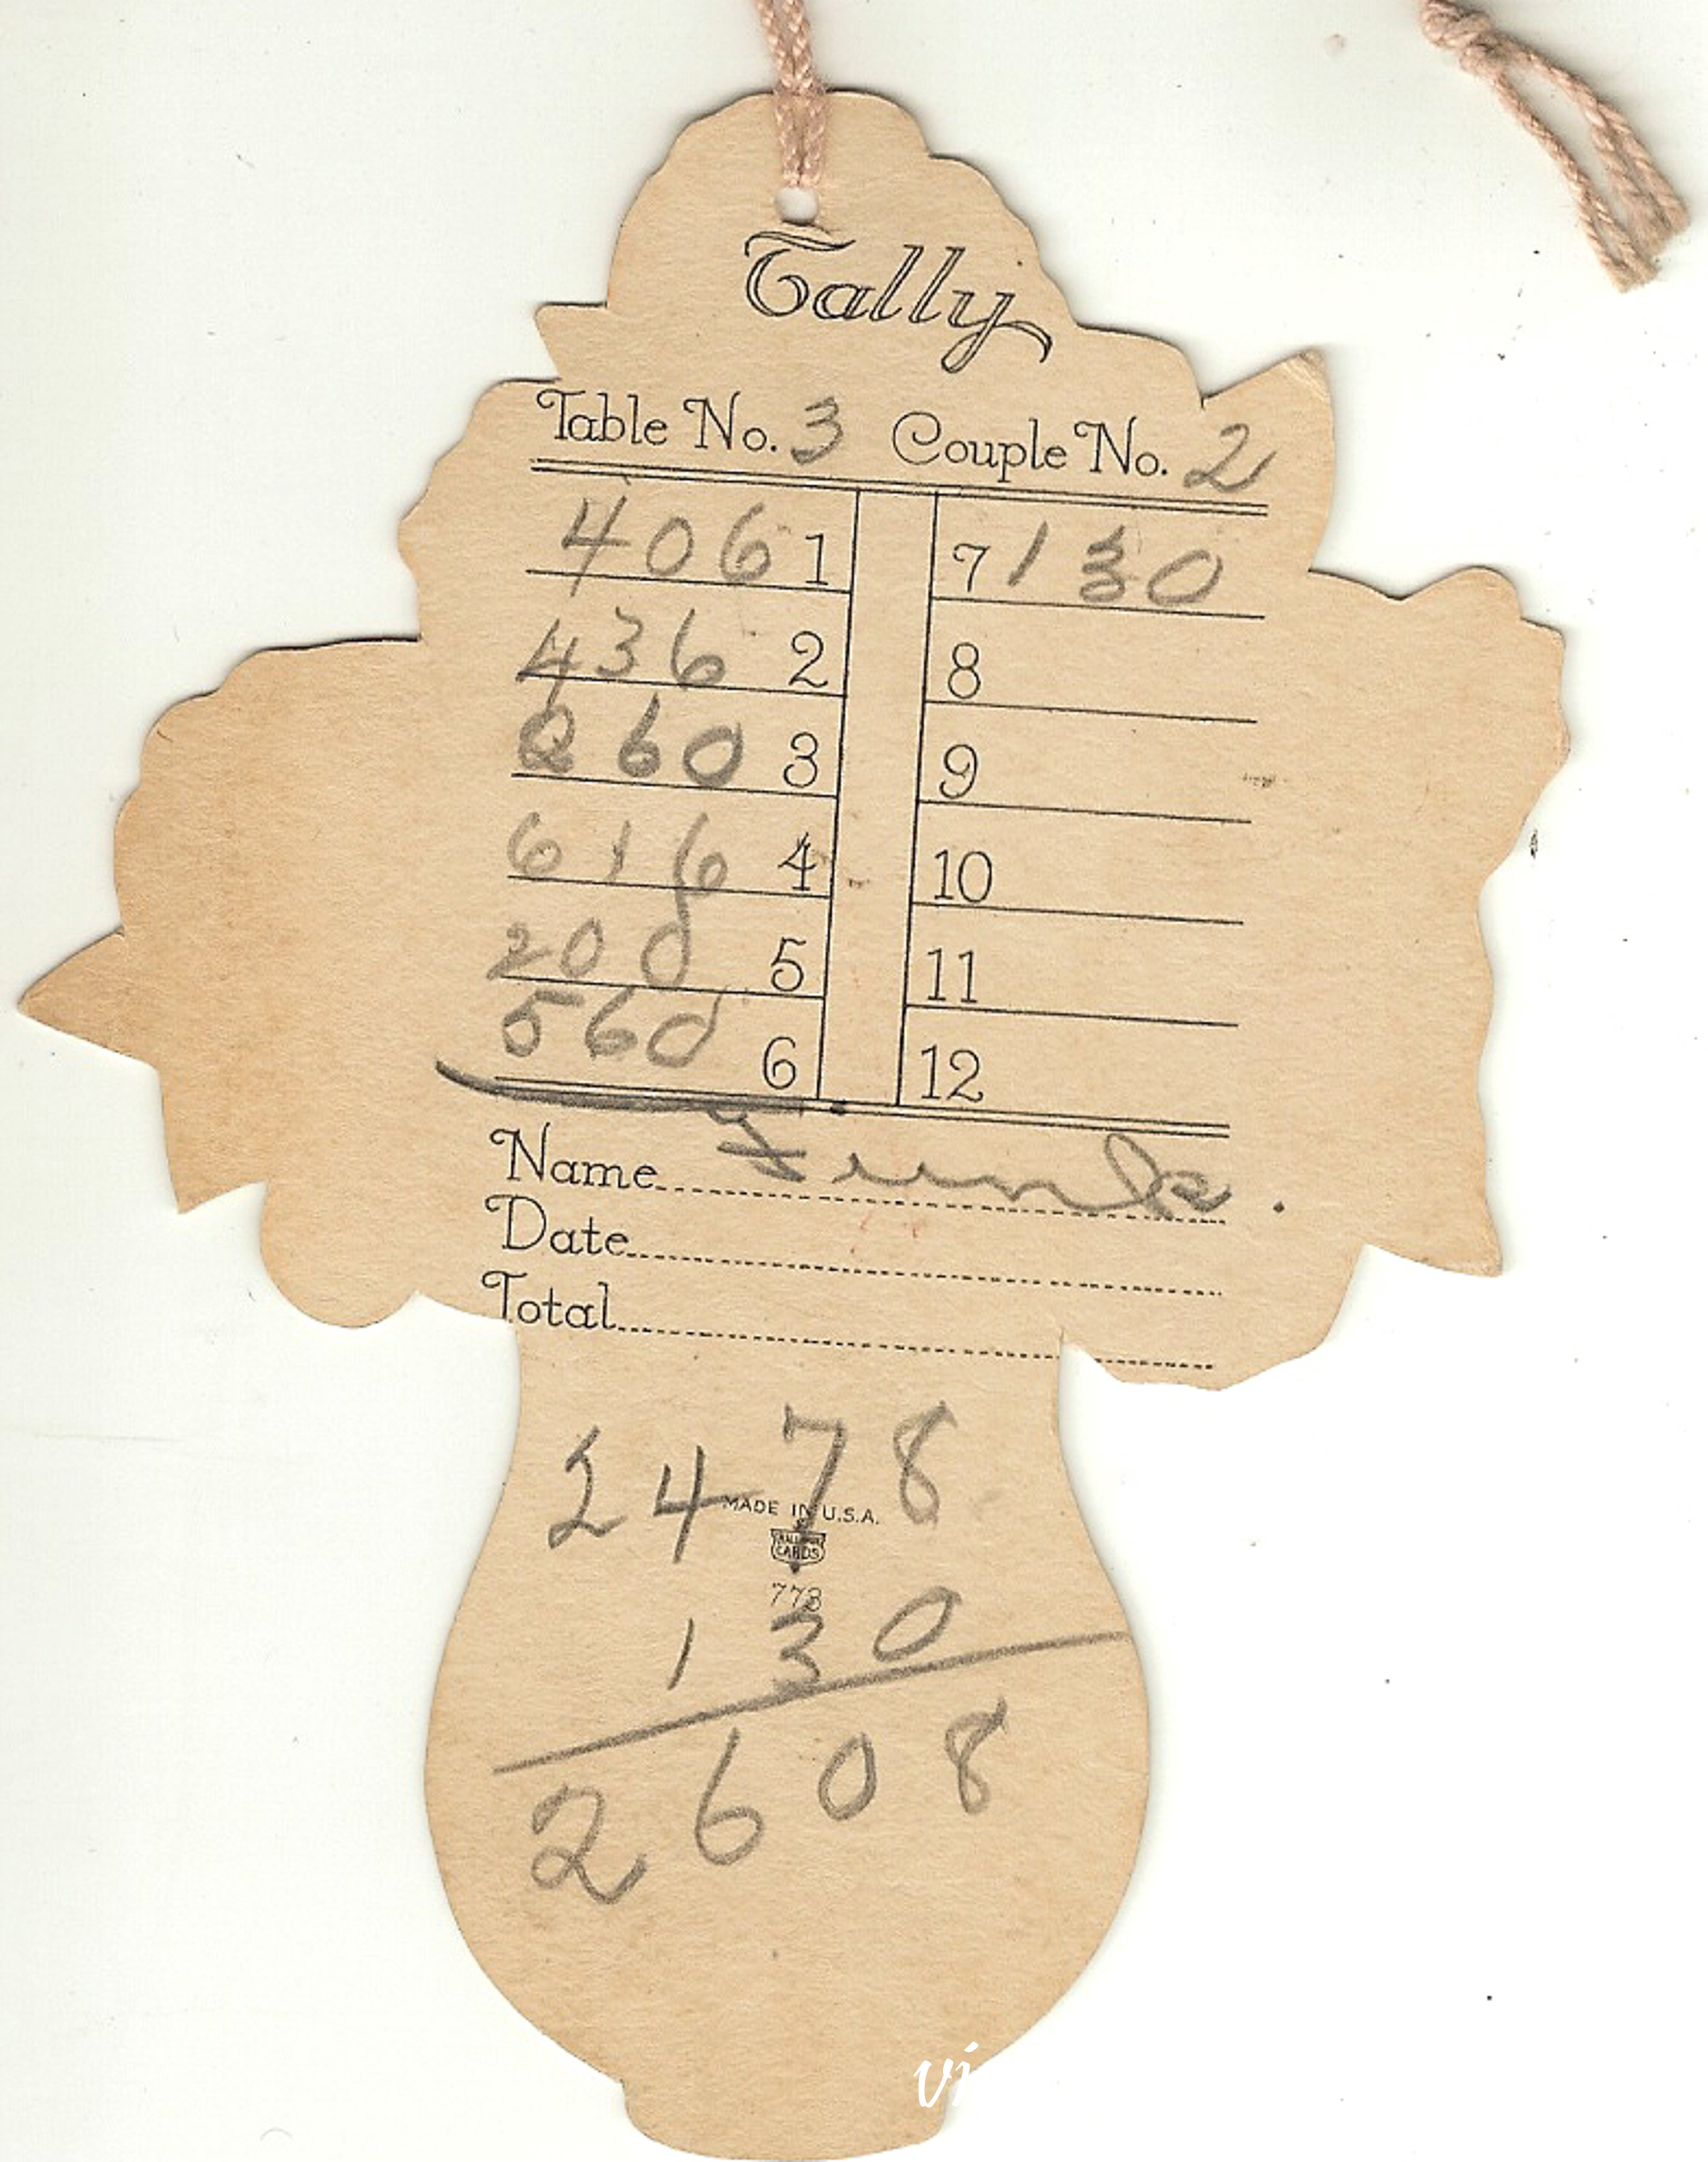 Tally
Table No. 3 Couple No. 2
406 1
436 2
260 3
616 4
200 5
560 6
7 130
8
9
10
11
12
Name
Date
Total
2478
MADE IN U.S.A.
HALL CARDS
773
130
2608
vi